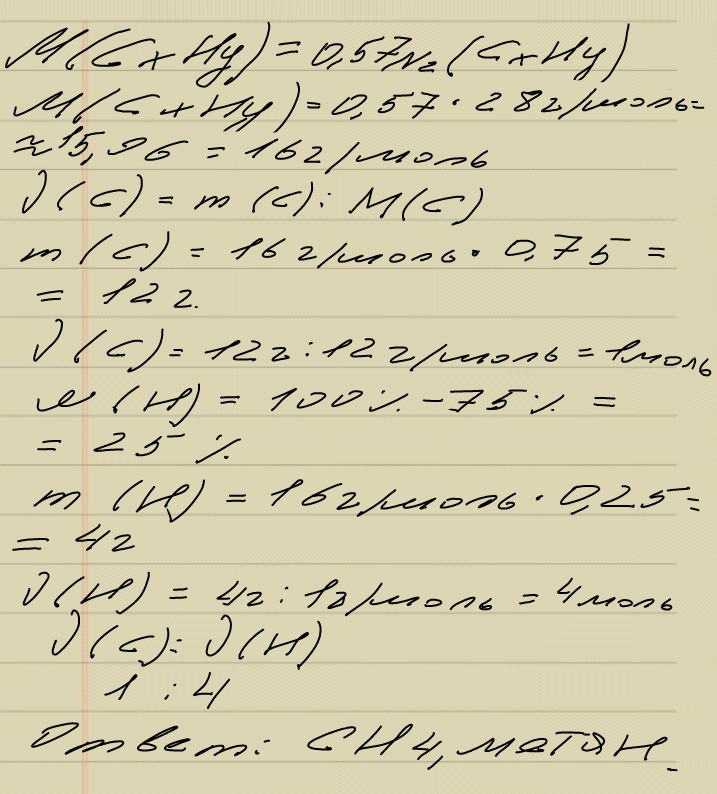 M(CxHy) = 0,57N2(CxHy)
M(CxHy) = 0,57 · 28г/моль =
≈ 15,96 = 16г/моль
ν(C) = m(C) : M(C)
m(C) = 16г/моль · 0,75 =
= 12г.
ν(C) = 12г : 12г/моль = 1моль
ω(H) = 100% - 75% =
= 25%
m(H) = 16г/моль · 0,25 =
= 4г
ν(H) = 4г : 1г/моль = 4моль
ν(C) : ν(H)
1 : 4
Ответ: CH4, метан.